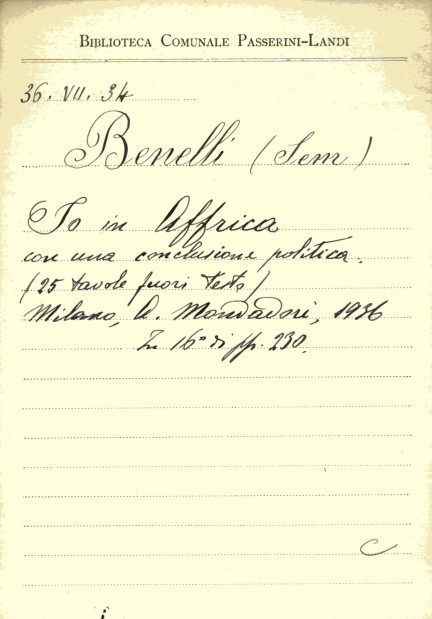 BIBLIOTECA COMUNALE PASSERINI-LANDI
36. VII. 34
Benelli (Sem)
Io in Affrica
con una conclusione politica.
(25 tavole fuori testo)
Milano, A. Mondadori, 1936
In 16° di pp. 230.
C